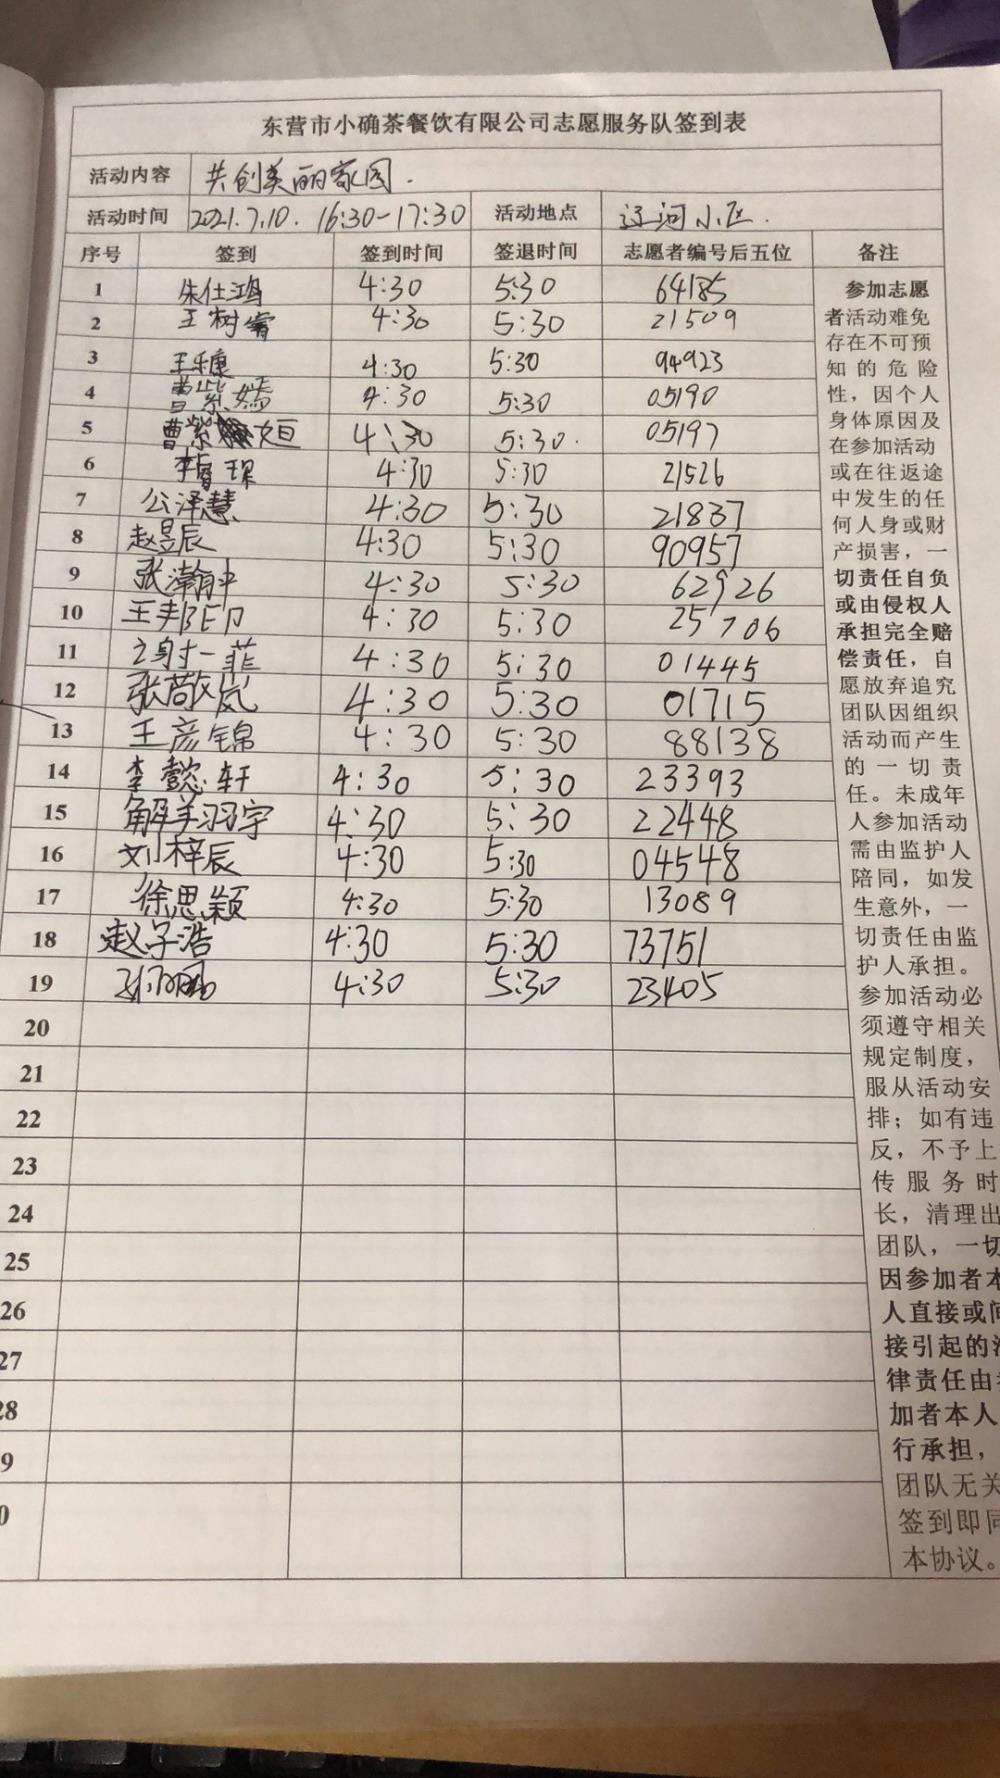 东营市小确茶餐饮有限公司志愿服务队签到表
活动内容 共创美丽家园.
活动时间 2021.7.10. 16:30-17:30 活动地点 辽河小区.
序号 签到 签到时间 签退时间 志愿者编号后五位 备注
1 朱仕鸿 4:30 5:30 64185
2 王树睿 4:30 5:30 21509
3 4:30 5:30 94923
4 曹紫嫣 4:30 5:30 05190
5 曹紫姮 4:30 5:30. 05197
6 4:30 5:30 21526
7 公泽慧 4:30 5:30 21837
8 赵昱辰 4:30 5:30 90957
9 张瀚中 4:30 5:30 62926
10 4:30 5:30 25706
11 谢一菲 4:30 5:30 01445
12 张敬岚 4:30 5:30 01715
13 王彦锦 4:30 5:30 88138
14 李懿轩 4:30 5:30 23393
15 解翔宇 4:30 5:30 22448
16 刘梓辰 4:30 5:30 04548
17 徐思颖 4:30 5:30 13089
18 赵子浩 4:30 5:30 73751
19 4:30 5:30 23405
20
21
22
23
24
25
26
27
28
9
0
参加志愿
者活动难免
存在不可预
知的危险
性，因个人
身体原因及
在参加活动
或在往返途
中发生的任
何人身或财
产损害，一
切责任自负
或由侵权人
承担完全赔
偿责任，自
愿放弃追究
团队因组织
活动而产生
的一切责
任。未成年
人参加活动
需由监护人
陪同，如发
生意外，一
切责任由监
护人承担。
参加活动必
须遵守相关
规定制度，
服从活动安
排；如有违
反，不予上
传服务时
长，清理出
团队，一切
因参加者本
人直接或间
接引起的法
律责任由参
加者本人
行承担，
团队无关
签到即同
本协议。